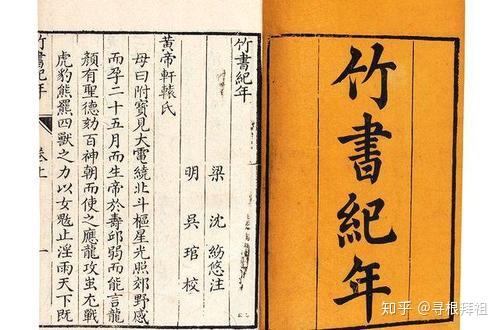 竹書紀年
竹書紀年
梁 沈 注
明 吳琯校
黃帝軒轅氏
母曰附寶見大電繞北斗樞星光照郊野感
而孕二十五月而生帝於壽邱弱而能言龍
顏有聖德劾百神朝而使之應龍攻蚩尤戰
虎豹熊羆四獸之力以女魃止淫雨天下既
竹書紀年 卷上 一
知乎 @寻根拜祖